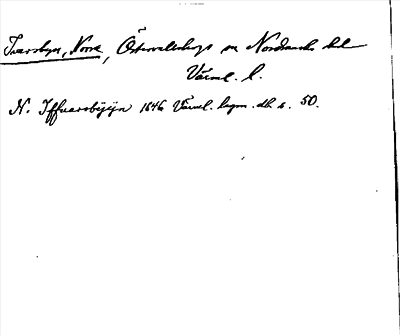 Ivarsbyn, Norra, Östervallskogs sn Nordmarks hd
Värml. l.
N. Iffuarsbÿijn 1646 Värml. lagm. db s. 50.